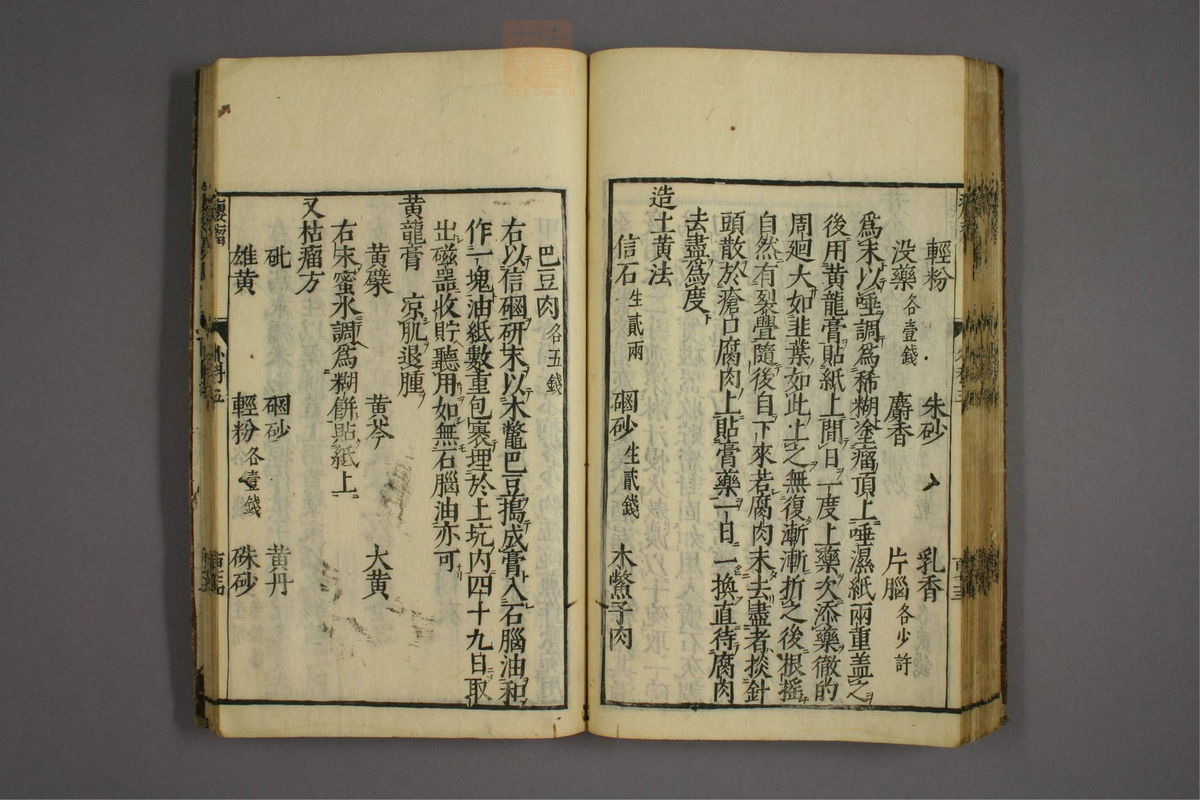 輕粉 朱砂 乳香
没藥各壹錢 麝香 片腦各少許
爲末以唾調爲稀糊塗瘤頂上唾濕紙兩重盖之
後用黄龍膏貼紙上間日一度上藥次添藥徹的
周廻大如韭葉如此上之無復漸漸折之後根摇
自然有裂疊隨後自下來若腐肉未去盡者掞針
頭散於瘡口腐肉上貼膏藥一日一換直待腐肉
去盡爲度
造土黄法
信石生貳兩 磠砂生貳錢 木鱉子肉
巴豆肉各五錢
右以信磠研末以木鱉巴豆搗成膏入石腦油和
作一塊油紙數重包裹埋於土坑内四十九日取
出磁器收貯聽用如無石腦油亦可
黄龍膏 凉肌退腫
黄檗 黄芩 大黄
右末蜜水調爲糊餅貼紙上
又枯瘤方
砒 磠砂 黄丹
雄黄 輕粉各壹錢 硃砂